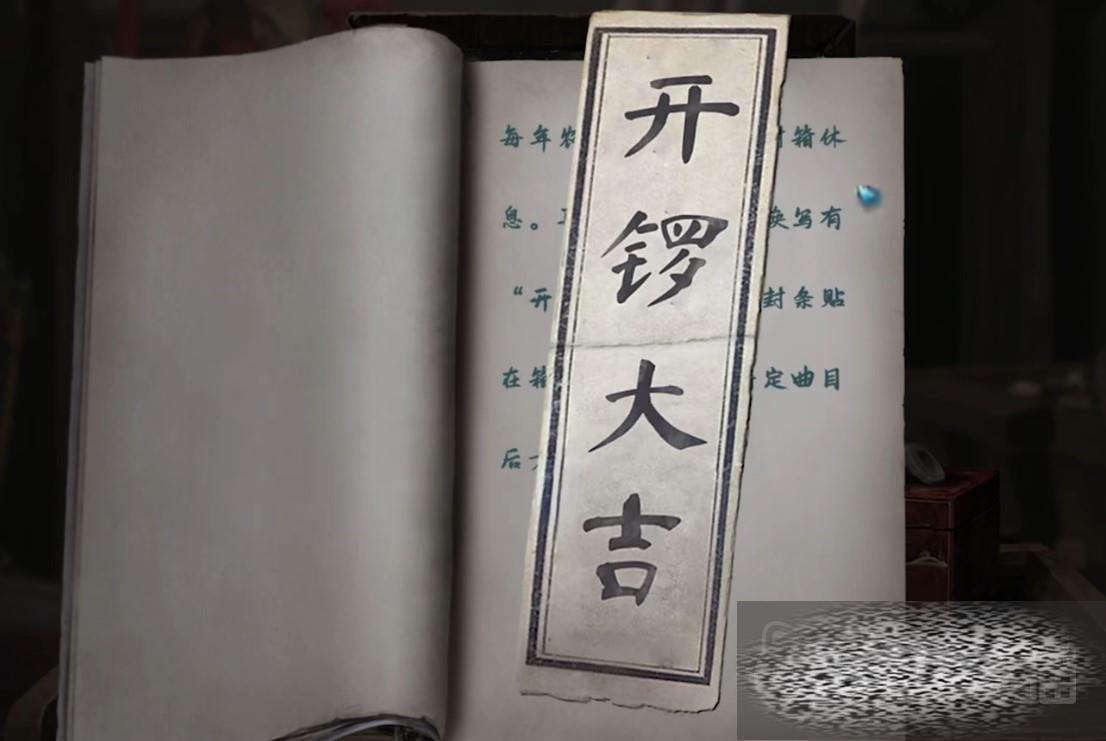 开锣大吉
每年农 箱休
息。 换写有
“开 封条贴
在箱 定曲目
后